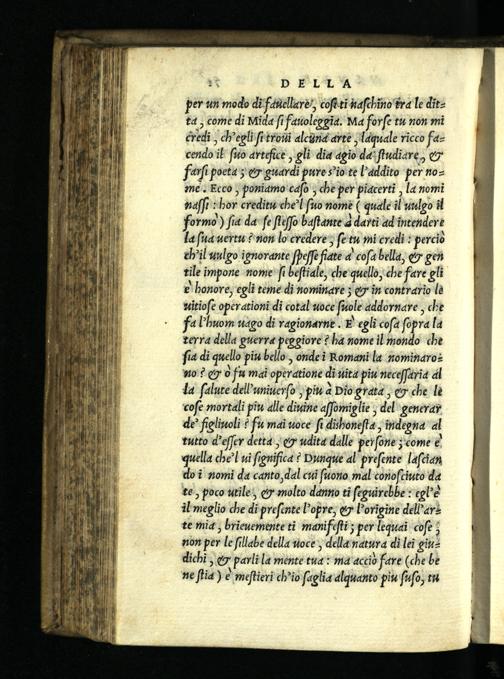 DELLA
per un modo di fauellare, cose ti naschino tra le dit=
ta, come di Mida si fauoleggia. Ma forse tu non mi
credi, ch'egli si troui alcuna arte, laquale ricco fa=
cendo il suo artefice, gli dia agio da studiare, &
farsi poeta; & guardi pure s'io te l'addito per no=
me. Ecco, poniamo caso, che per piacerti, la nomi
nassi: hor creditu che'l suo nome (quale il uulgo il
formò) sia da se stesso bastante à darti ad intendere
la sua uertu? non lo credere, se tu mi credi: perciò
ch'il uulgo ignorante spesse fiate à cosa bella, & gen
tile impone nome si bestiale, che quello, che fare gli
è honore, egli teme di nominare; & in contrario le
uitiose operationi di cotal uoce suole addornare, che
fa l'huom uago di ragionarne. È egli cosa sopra la
terra della guerra peggiore? ha nome il mondo che
sia di quello piu bello, onde i Romani la nominaro=
no? & ò fu mai operatione di uita piu necessaria al
la salute dell'uniuerso, più à Dio grata, & che le
cose mortali piu alle diuine assomiglie, del generar
de' figliuoli? fu mai uoce si dishonesta, indegna al
tutto d'esser detta, & udita dalle persone; come è
quella che'l ui significa? Dunque al presente lascian
do i nomi da canto, dal cui suono mal conosciuto da
te, poco utile, & molto danno ti seguirebbe: egl'è
il meglio che di presente l'opre, & l'origine dell'ar=
te mia, brieuemente ti manifesti; per lequai cose,
non per le sillabe della uoce, della natura di lei giu=
dichi, & parli la mente tua: ma acciò fare (che be
ne stia) è mestieri ch'io saglia alquanto piu suso, tu